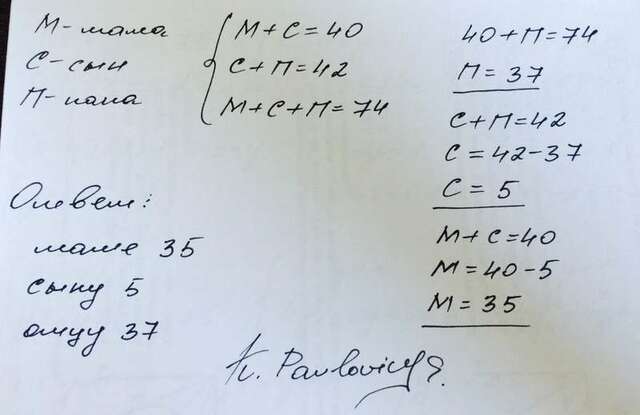 М-мама
С-сын
П-папа
М+С=40
С+П=42
М+С+П=74
40+П=74
П=37
С+П=42
С=42-37
С=5
М+С=40
М=40-5
М=35
Ответ:
маме 35
сыну 5
отцу 37